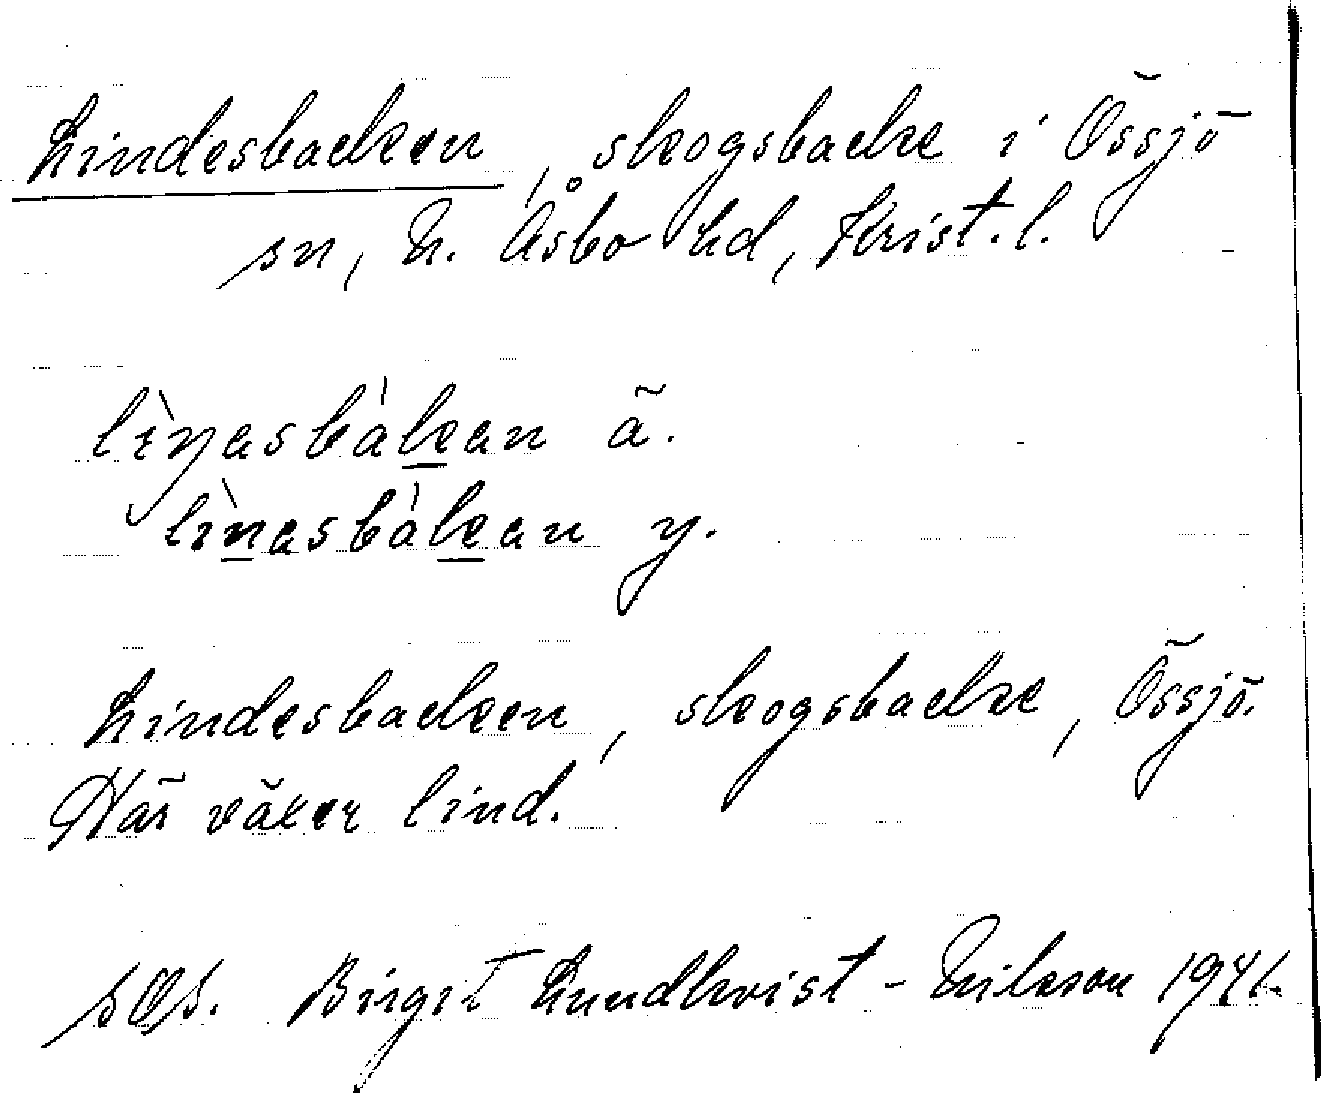 Lindesbacken, skogsbacke i Össjö
sn, N. Åsbo hd, Krist. l.
lìŋasbàkan ä.
lìnasbàkan y.
Lindesbacken, skogsbacke, Össjö.
Här växer lind.
Birgit Lundkvist-Nilsson 1941.